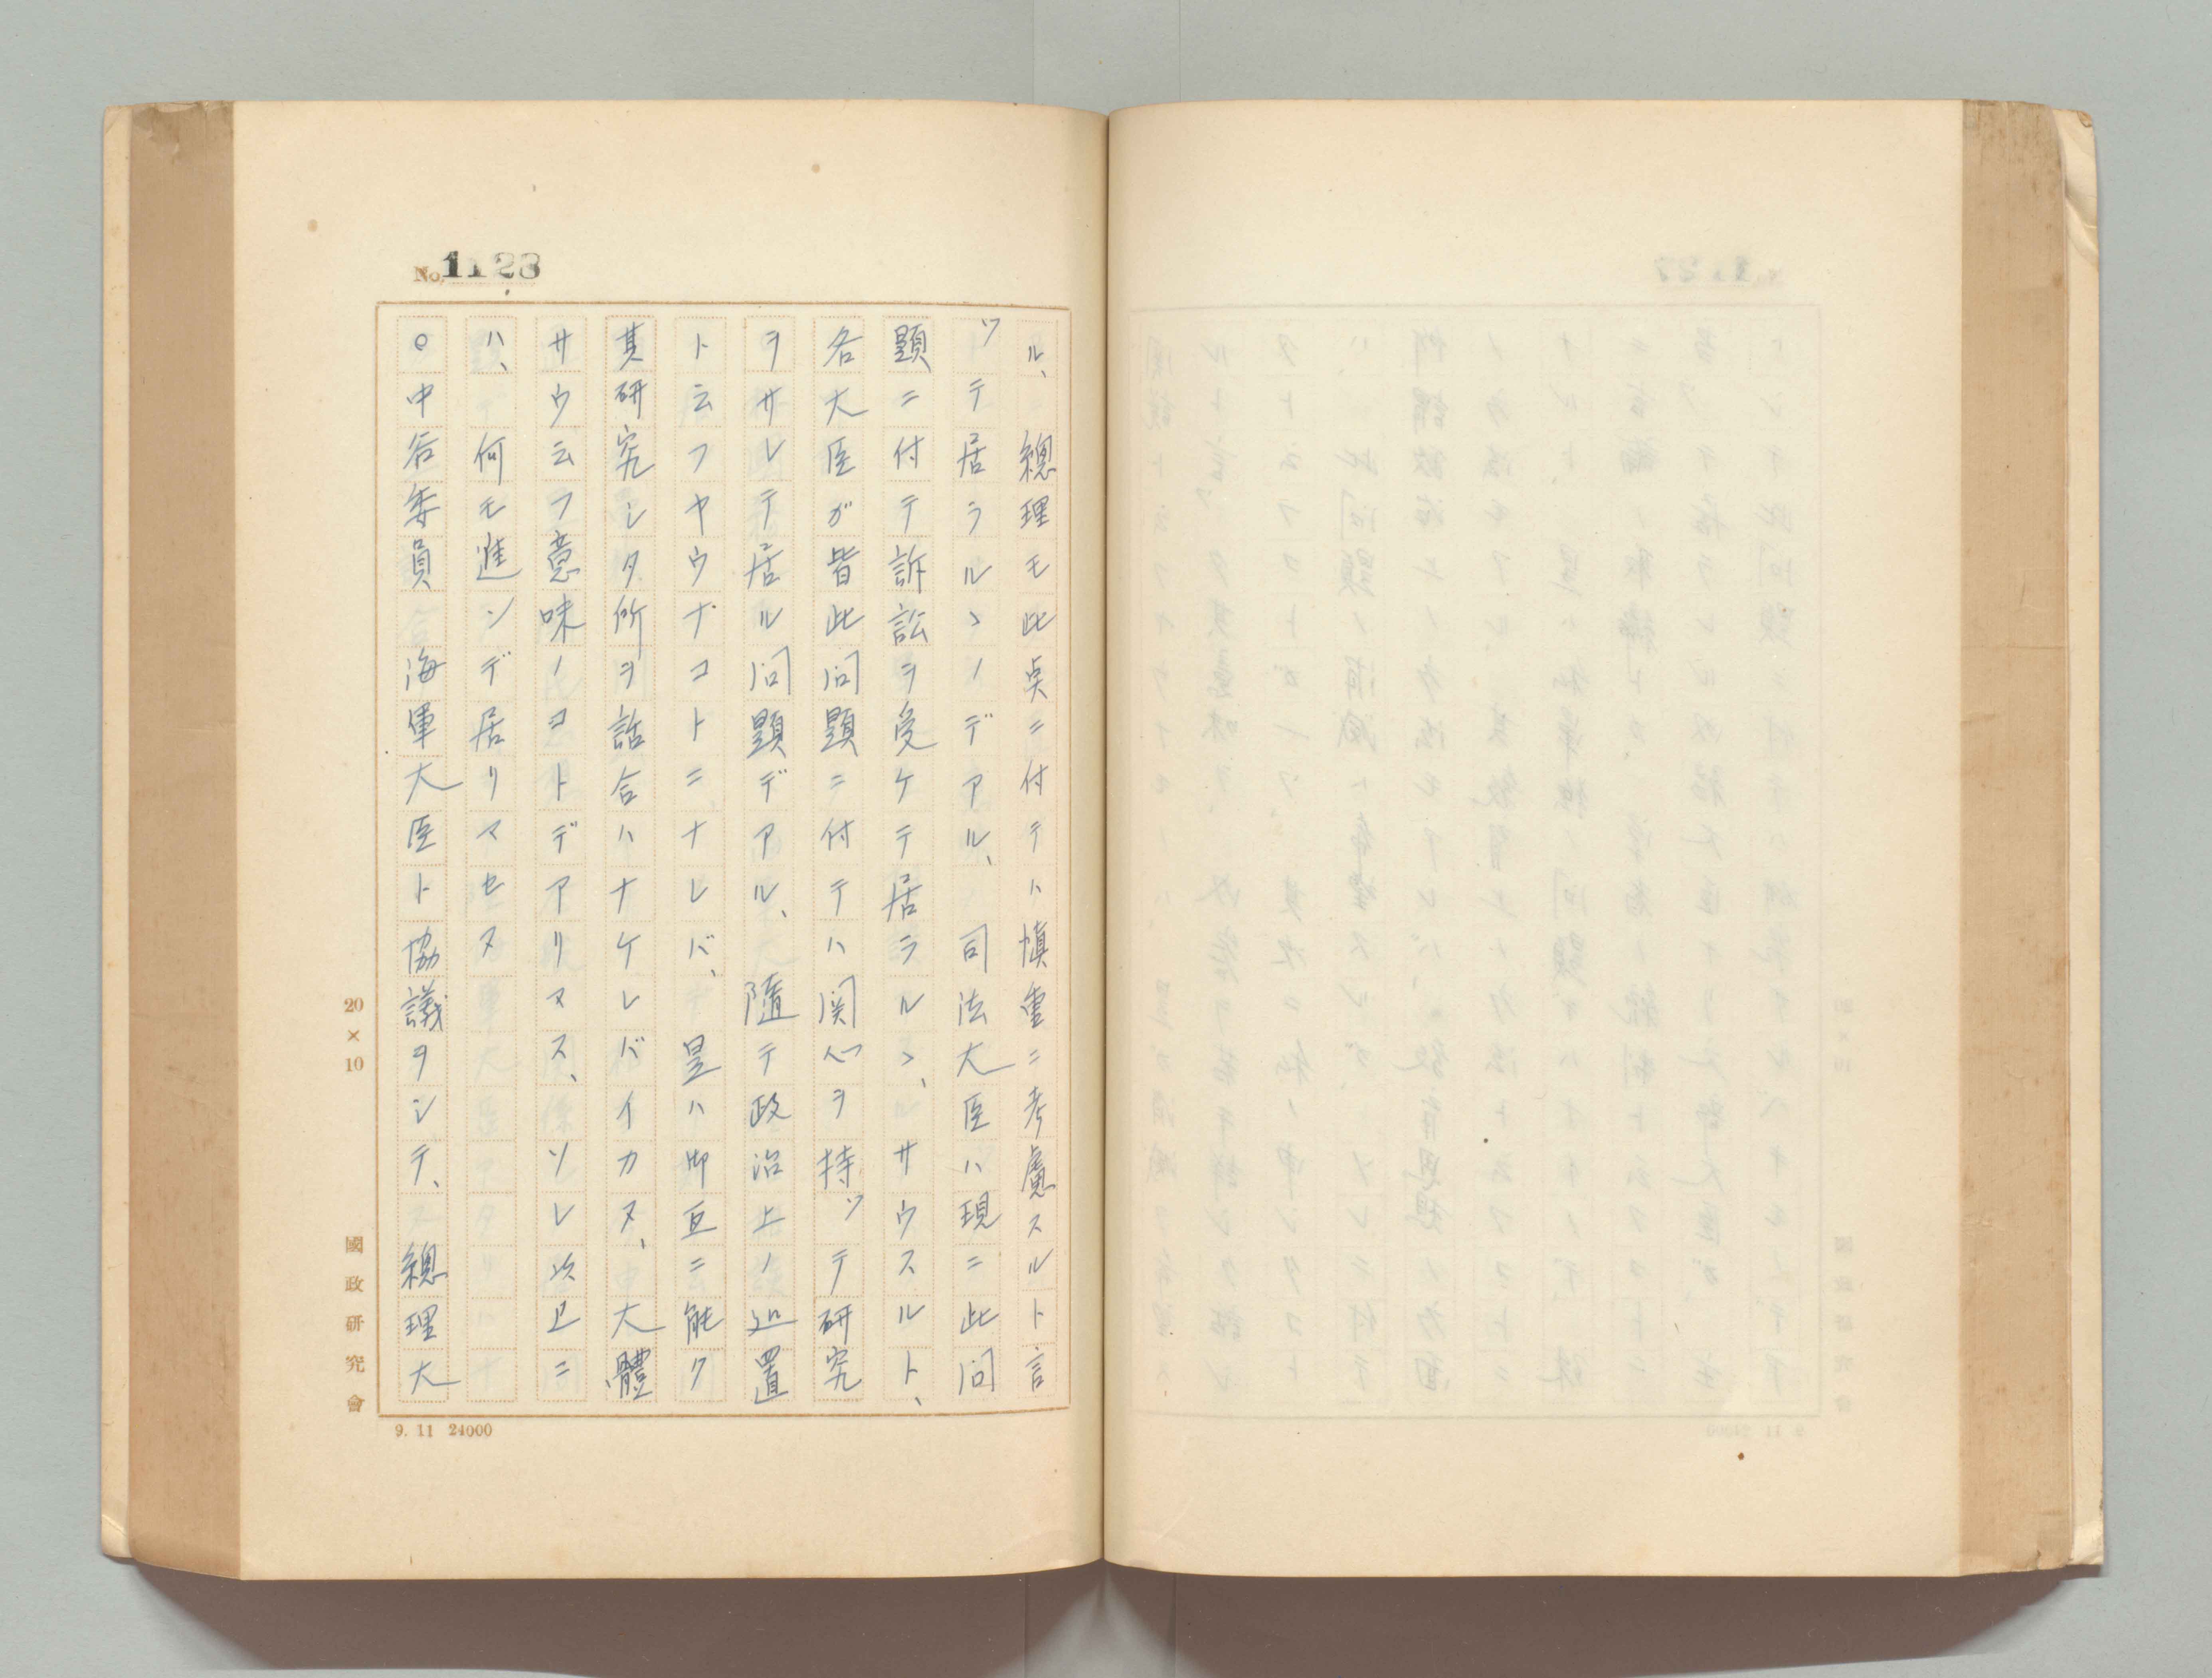 No. 1123
ル、總理モ此点ニ付テハ慎重ニ考慮スルト言
ツテ居ラルヽノデアル、司法大臣ハ現ニ此問
題ニ付テ訴訟ヲ受ケテ居ラルヽ、サウスルト、
各大臣ガ皆此問題ニ付テハ関心ヲ持ツテ研究
ヲサレテ居ル問題デアル、隨テ政治上ノ処置
ト云フヤウナコトニナレバ、是ハ御互ニ能ク
其研究シタ所ヲ話合ハナケレバイカヌ、大體
サウ云フ意味ノコトデアリマス、ソレ以上ニ
ハ、何モ進ンデ居リマセヌ
○中谷委員 海軍大臣ト協議ヲシテ、總理大
20×10
國政研究會
9. 11 24000